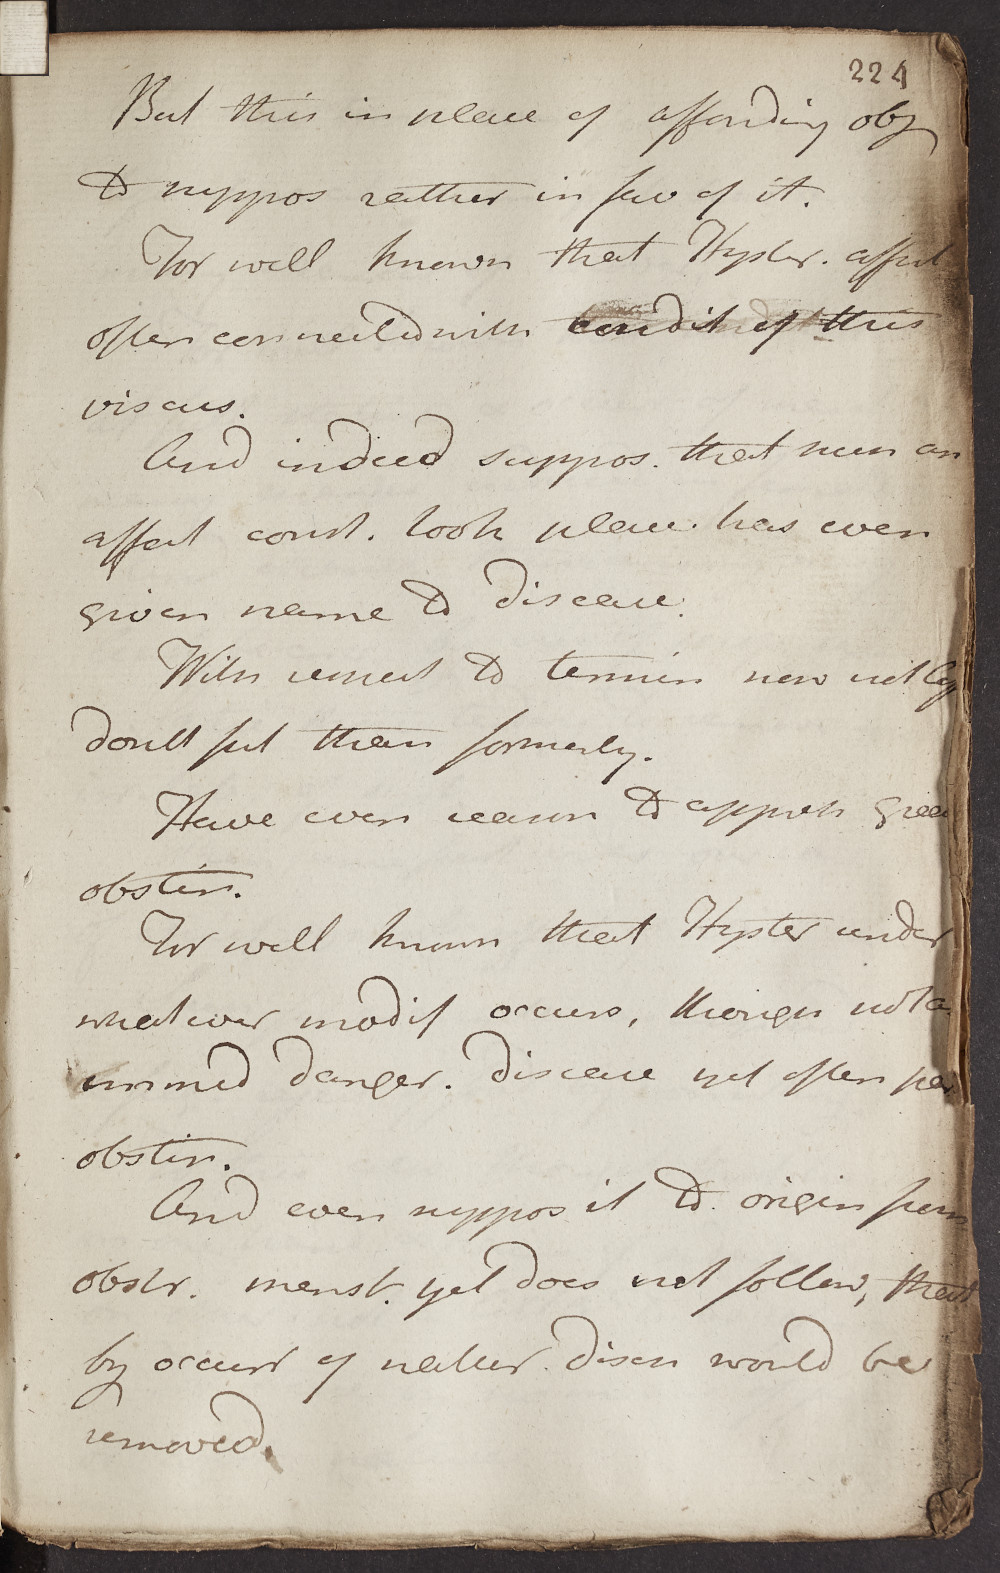 224
But this in place of affording obj
to suppos rather in fav of it.
For well known that Hyster. affect
often connected with condit of this
viscus.
And indeed suppos. that such an
affect const. took place has even
given name to disease.
With respect to termin now not less
doubtful than formerly.
Have even reason to appreh great
obstin.
For well known that Hyster under
whatever modif occurs, though not a
immed danger. disease yet often per
obstin.
And even suppos it to origin from
obstr. menst. yet does not follow, that
by occurr of natur. discn would be
removed.